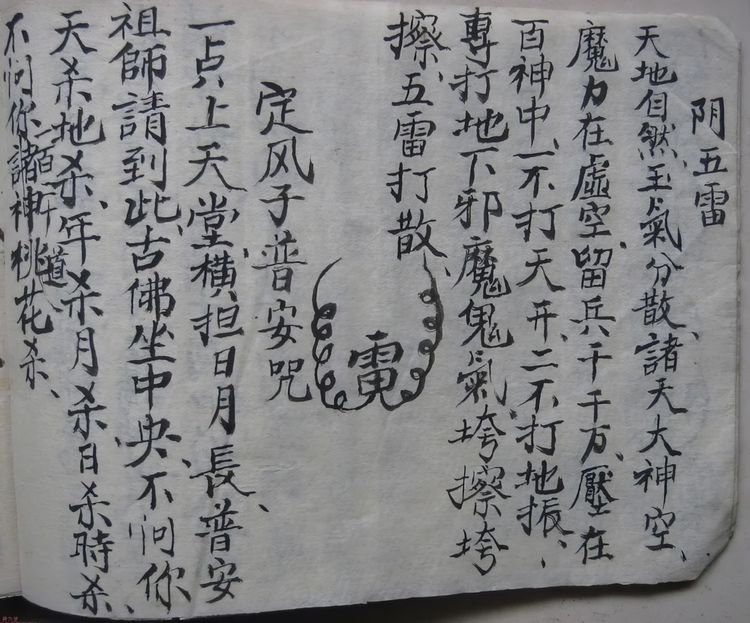 阴五雷
天地自然、玉氣分散、諸天大神空、
魔力在虛空、留兵千千万、壓在
百神中、一不打天开、二不打地振、
專打地下邪魔鬼氣、垮擦垮
擦、五雷打散、
雷
定风子普安咒
一点上天堂、横担日月長、普安
祖師請到此、古佛坐中央、不问你
天杀地杀、年杀月杀日杀時杀、
不问你一百二十道諸神桃花杀、